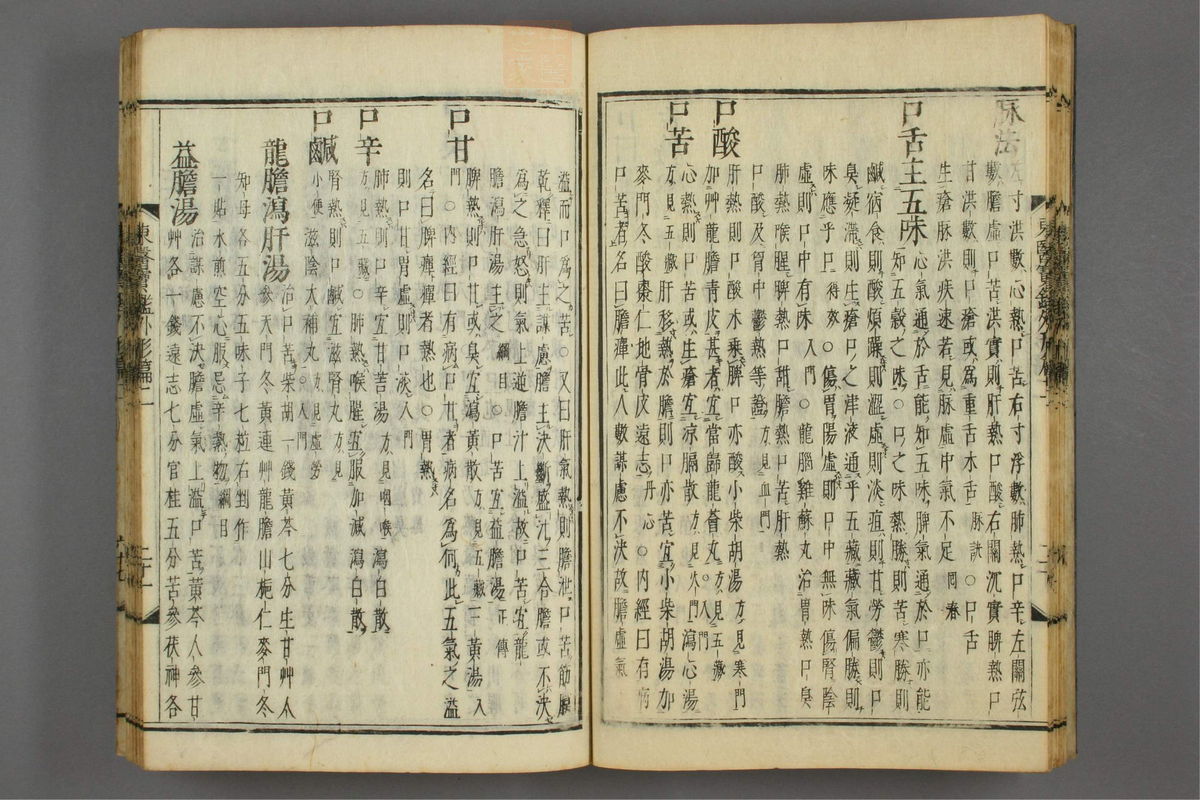 脉法 左寸洪數心熱口苦右寸浮數肺熱口辛左關弦
數膽虛口苦洪實則肝熱口酸右關沉實脾熱口
甘洪數則口瘡或爲重舌木舌脉訣○口舌
生瘡脉洪疾速若見脉虛中氣不足回春
口舌主五味 心氣通於舌能知五味脾氣通於口亦能
知五穀之味○口之味熱勝則苦寒勝則
鹹宿食則酸煩躁則澀虛則淡疽則甘勞鬱則口
臭凝滯則生瘡口之津液通乎五藏藏氣偏勝則
味應乎口得效○傷胃陽虛則口中無味傷腎陰
虛則口中有味入門○龍腦雞蘇丸治胃熱口臭
肺熱喉腥脾熱口甜膽熱口苦肝熱
口酸及胷中鬱熱等證方見血門
口酸 肝熱則口酸木乘脾口亦酸小柴胡湯方見寒門
加艸龍膽青皮甚者宜當歸龍薈丸方見五藏○入門
口苦 心熱則口苦或生瘡宜涼膈散方見火門瀉心湯
○肝移熱於膽則口亦苦宜小柴胡湯加
麥門冬酸棗仁地骨皮遠志丹心○內經曰有病
口苦者名曰膽癉此人數謀慮不決故膽虛氣
東醫寶鑑外形篇二
溢而口爲之苦○又曰肝氣熱則膽泄口苦筋膜
乾釋曰肝主謀慮膽主決斷盛汁三合膽或不決
爲之急怒則氣上逆膽汁上溢故口苦宜龍
膽瀉肝湯主之綱目○口苦宜益膽湯正傳
口甘 脾熱則口甘或臭宜瀉黃散方見五藏三黃湯入
門○內經曰有病口甘者病名爲何此五氣之溢
名曰脾癉癉者熱也○胃熱
則口甘胃虛則口淡入門
口辛 肺熱則口辛宜甘吉湯方見咽喉瀉白散
方見五藏○肺熱喉腥宜服加減瀉白散
口鹹 腎熱則口鹹宜滋腎丸方見
小便滋陰大補丸方見虛勞
龍膽瀉肝湯 治口苦柴胡一錢黃芩七分生甘艸人
參天門冬黃連艸龍膽山梔仁麥門冬
知母各五分五味子七粒右剉作
一貼水煎空心服忌辛熱物綱目
益膽湯 治謀慮不決膽虛氣上溢口苦黃芩人參甘
艸各一錢遠志七分官桂五分苦參茯神各
東醫寶鑑外形篇二